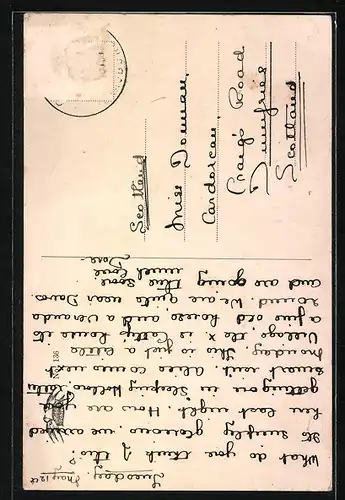 Tuesday
May 12th
What do you think of this?
Its simply glorious. We arrived
here last night. How are you
getting on in Sleeping Hollow.
smart isnt. Alice comes next
Monday. This is just a little
Village, the x. is house its
a fine old house, and a veranda
round. We are quite near Davos
and are going
much love
Dora
No. 136
Scotland
Miss Donnan,
Cardorcan,
Craigs Road
Dumfries
Scotland